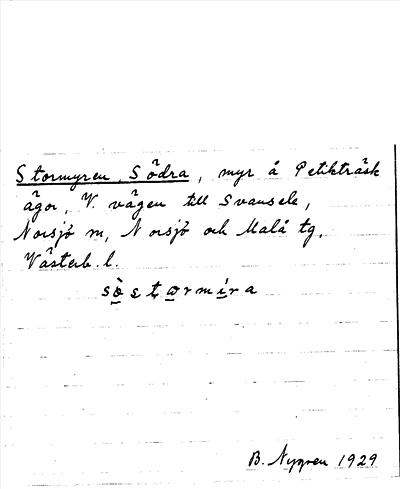 Stormyren, Södra, myr å Petikträsk
ägor, V. vägen till Svansele,
Norsjö m, Norsjö och Malå tg.
Västerb. l.
sö̀starmíra
B. Nygren 1929